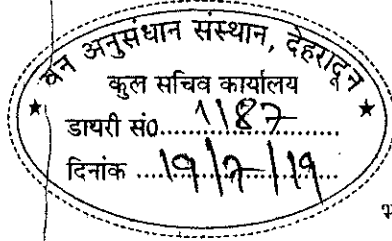 वन अनुसंधान संस्थान, देहरादून
कुल सचिव कार्यालय
★ ★
डायरी सं0.....1187.....
दिनांक .....19/7/19.....